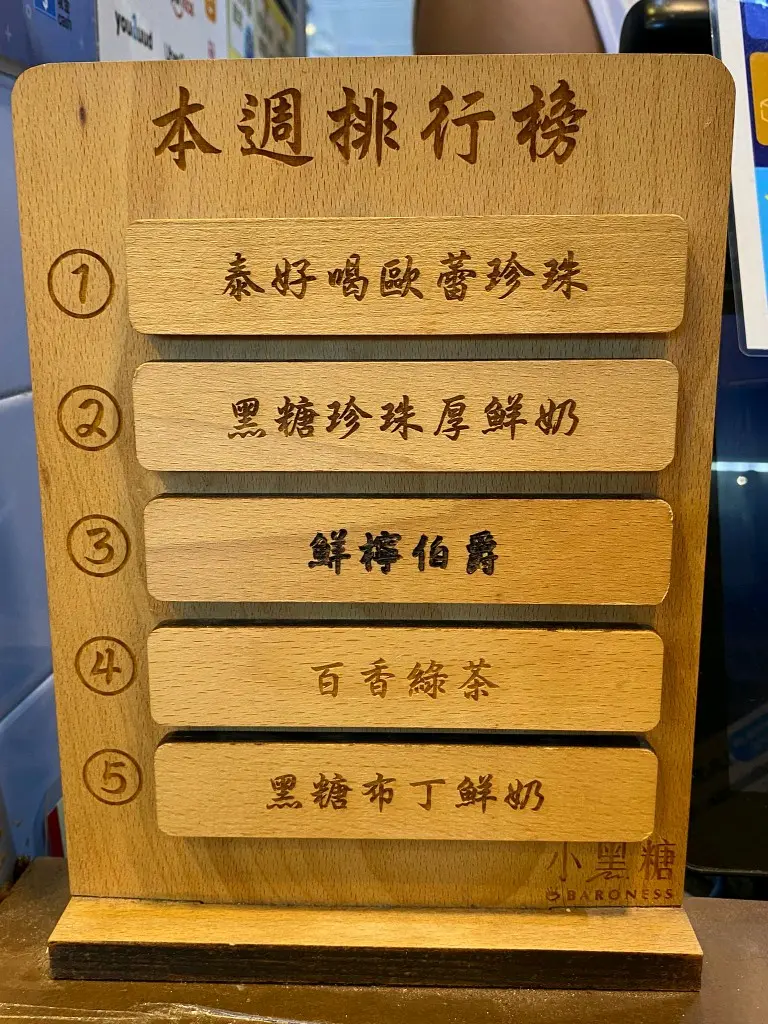 本週排行榜
1 泰好喝歐蕾珍珠
2 黑糖珍珠厚鮮奶
3 鮮檸伯爵
4 百香綠茶
5 黑糖布丁鮮奶
小黑糖
BARONESS